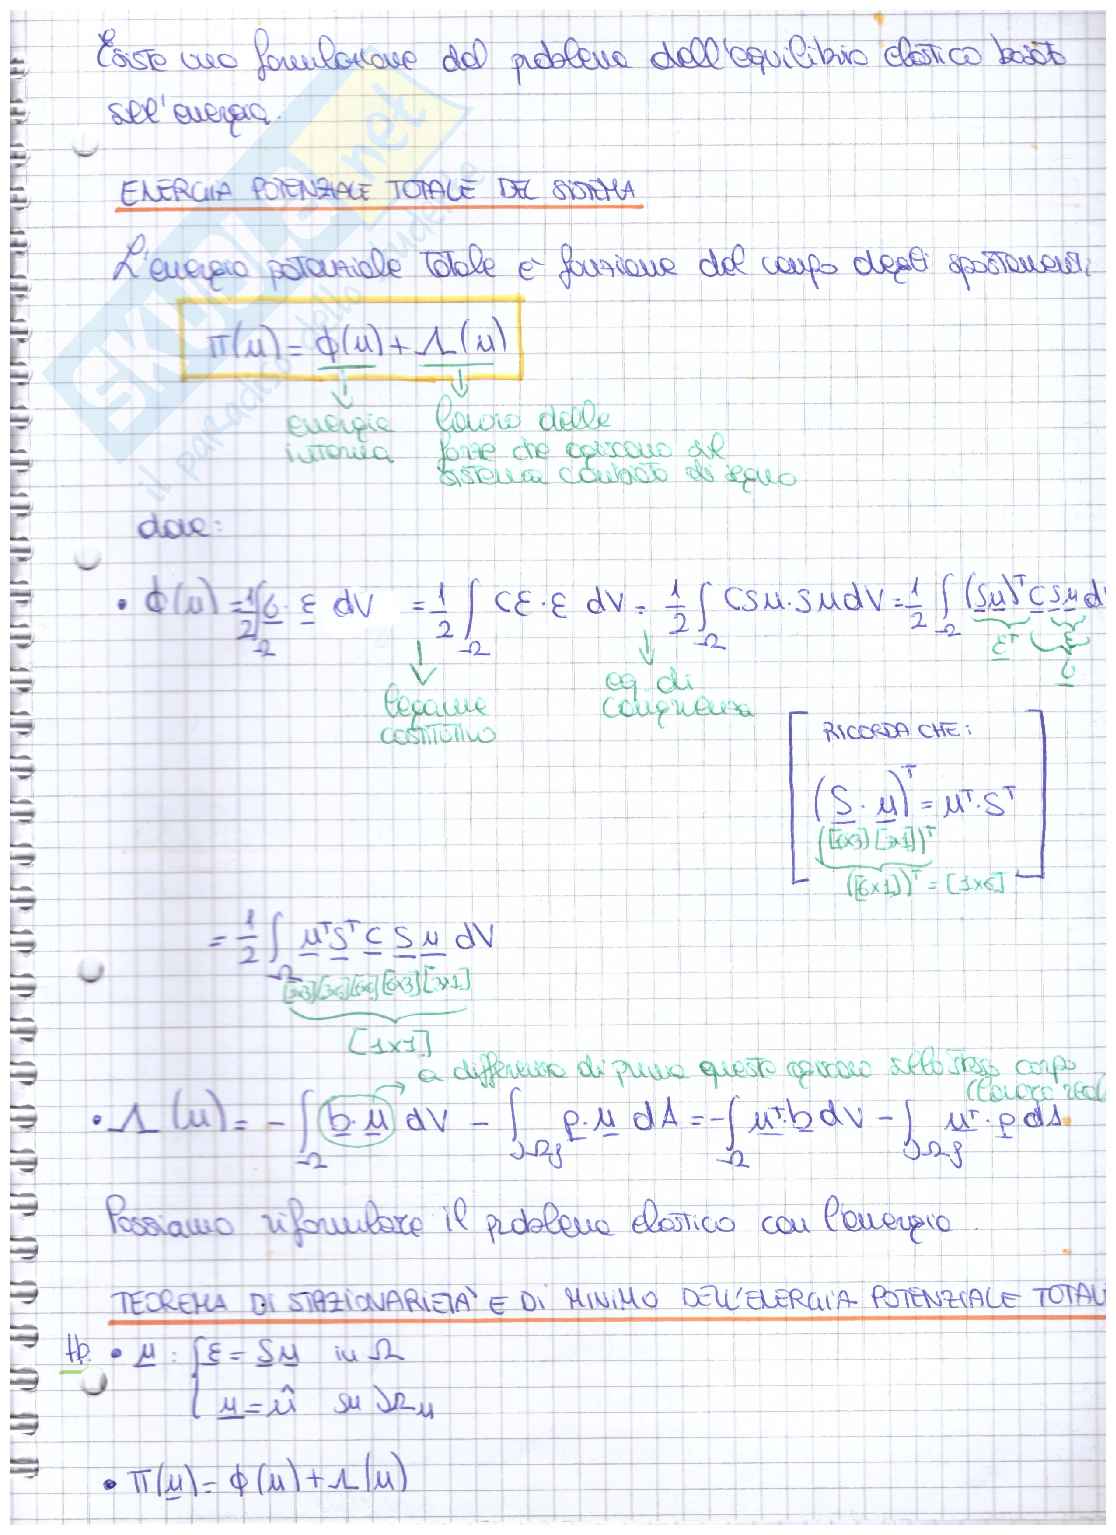 Esiste una formulazione del problema dell'equilibrio elastico basata
sull'energia.
ENERGIA POTENZIALE TOTALE DEL SISTEMA
L'energia potenziale totale è funzione del campo degli spostamenti,
π(u) = ϕ(u) + Λ(u)
energia lavoro delle
interna forze che agiscono sul
sistema cambiato di segno
dove:
• ϕ(u) = 1/2 ∫_Ω σ · ε dV = 1/2 ∫_Ω Cε · ε dV = 1/2 ∫_Ω CSu · Su dV = 1/2 ∫_Ω (Su)ᵀ C S u d
εᵀ ε
σ
legame eq. di
costitutivo congruenza
RICORDA CHE:
(S · u)ᵀ = uᵀ · Sᵀ
([6x3] [3x1])ᵀ
([6x1])ᵀ = [1x6]
= 1/2 ∫_Ω uᵀ Sᵀ C S u dV
[1x3][3x6][6x6][6x3][3x1]
[1x1]
a differenza di prima queste agiscono sullo stesso corpo
(lavoro real
• Λ(u) = - ∫_Ω b · u dV - ∫_∂Ωf p · u dA = - ∫_Ω uᵀ · b dV - ∫_∂Ωf uᵀ · p dA
Possiamo riformulare il problema elastico con l'energia.
TEOREMA DI STAZIONARIETA' E DI MINIMO DELL'ENERGIA POTENZIALE TOTAL
Hp. • u : { ε = Su in Ω
u = û su ∂Ωu
• π(u) = ϕ(u) + Λ(u)
SKUOLA.net
il paradiso dello studente